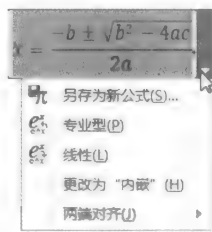 x = \frac{-b \pm \sqrt{b^2 - 4ac}}{2a}
另存为新公式(S)...
专业型(P)
线性(L)
更改为“内嵌”(H)
两端对齐(J)